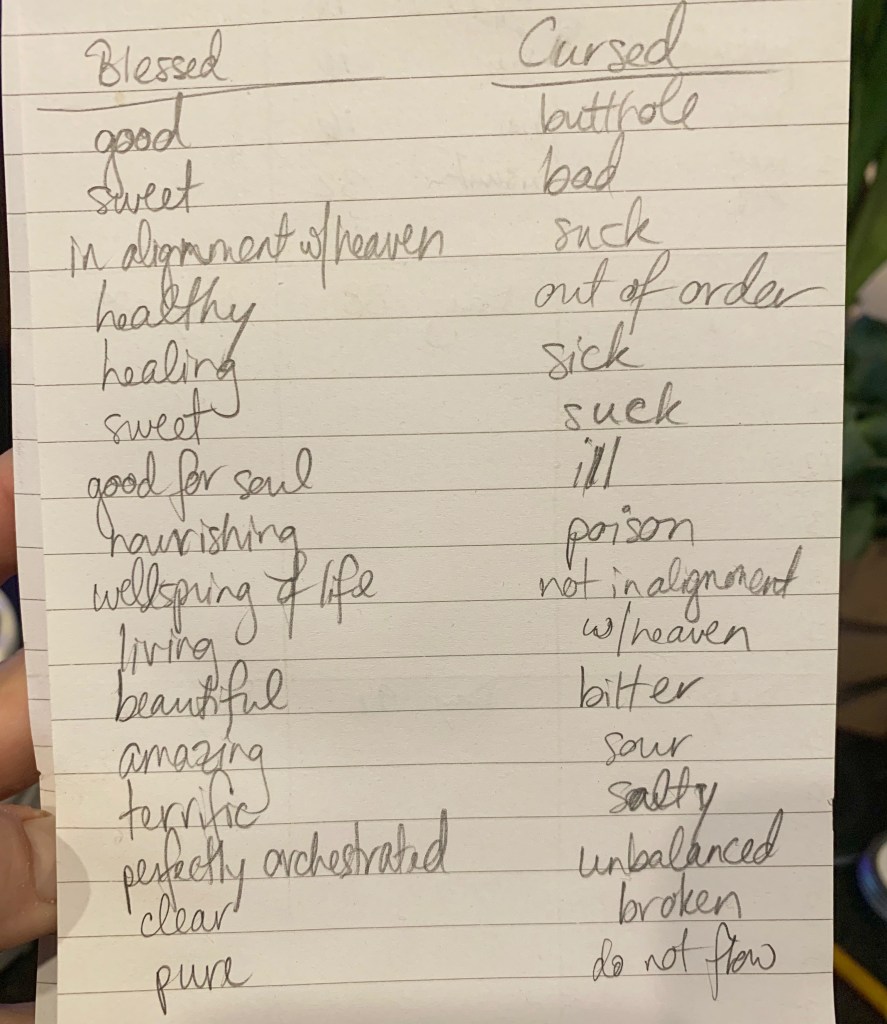 Blessed
good
sweet
in alignment w/heaven
healthy
healing
sweet
good for soul
nourishing
wellspring of life
living
beautiful
amazing
terrific
perfectly orchestrated
clear
pure
Cursed
butthole
bad
suck
out of order
sick
suck
ill
poison
not in alignment
w/heaven
bitter
sour
salty
unbalanced
broken
do not flow